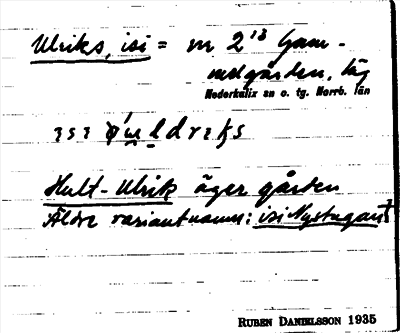 Ulriks, isi = nr 2¹³ Gam-
melgården, låg
Nederkalix sn o. tg. Norrb. län
Hult-Ulrik äger gården
Äldre variantnamn: isi Nystugan
RUBEN DANIELSSON 1935